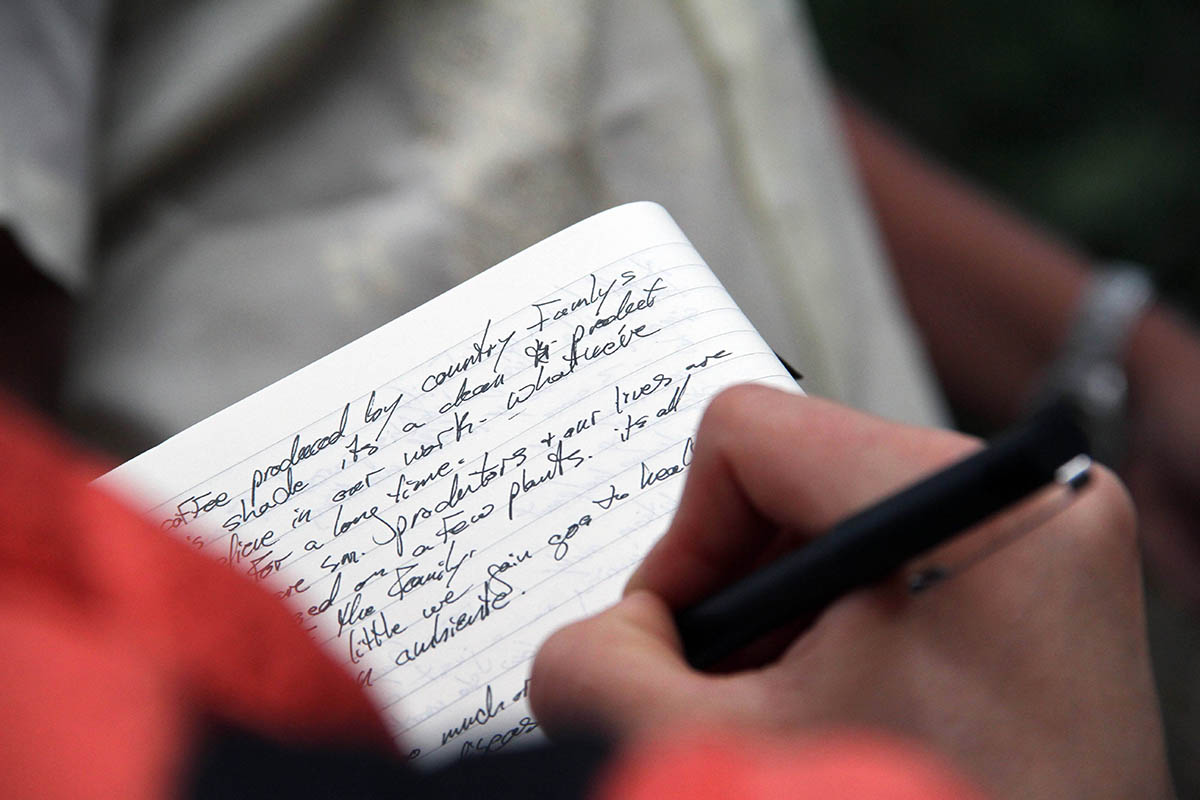 coffee produced by country Familys
is shade its a clean product
believe in our work - whatweve
for a long time.
are sm. produtors + our lives are
based on a few plants. its all
the Family.
little we gain goes to heal
ambiente.
much